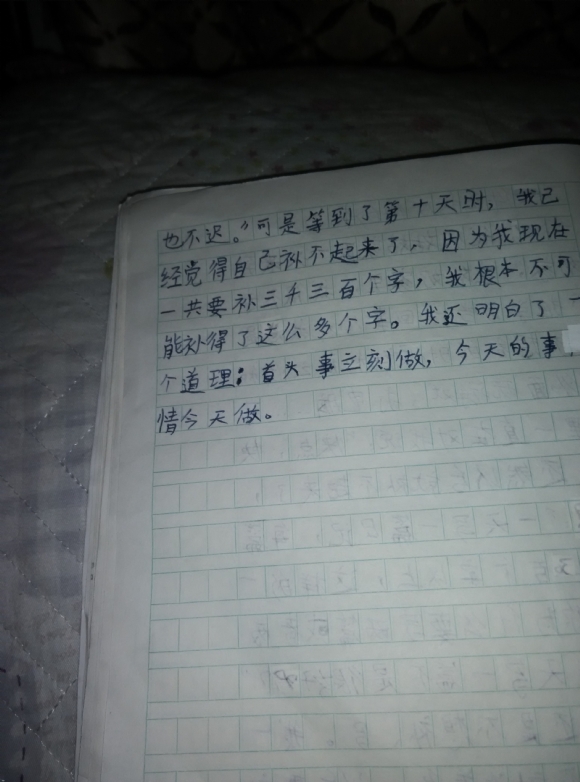 也不迟。”可是等到了第十天时，我已
经觉得自己补不起来了，因为我现在
一共要补三千三百个字，我根本不可
能补得了这么多个字。我还明白了一
个道理：首头事立刻做，今天的事
情今天做。